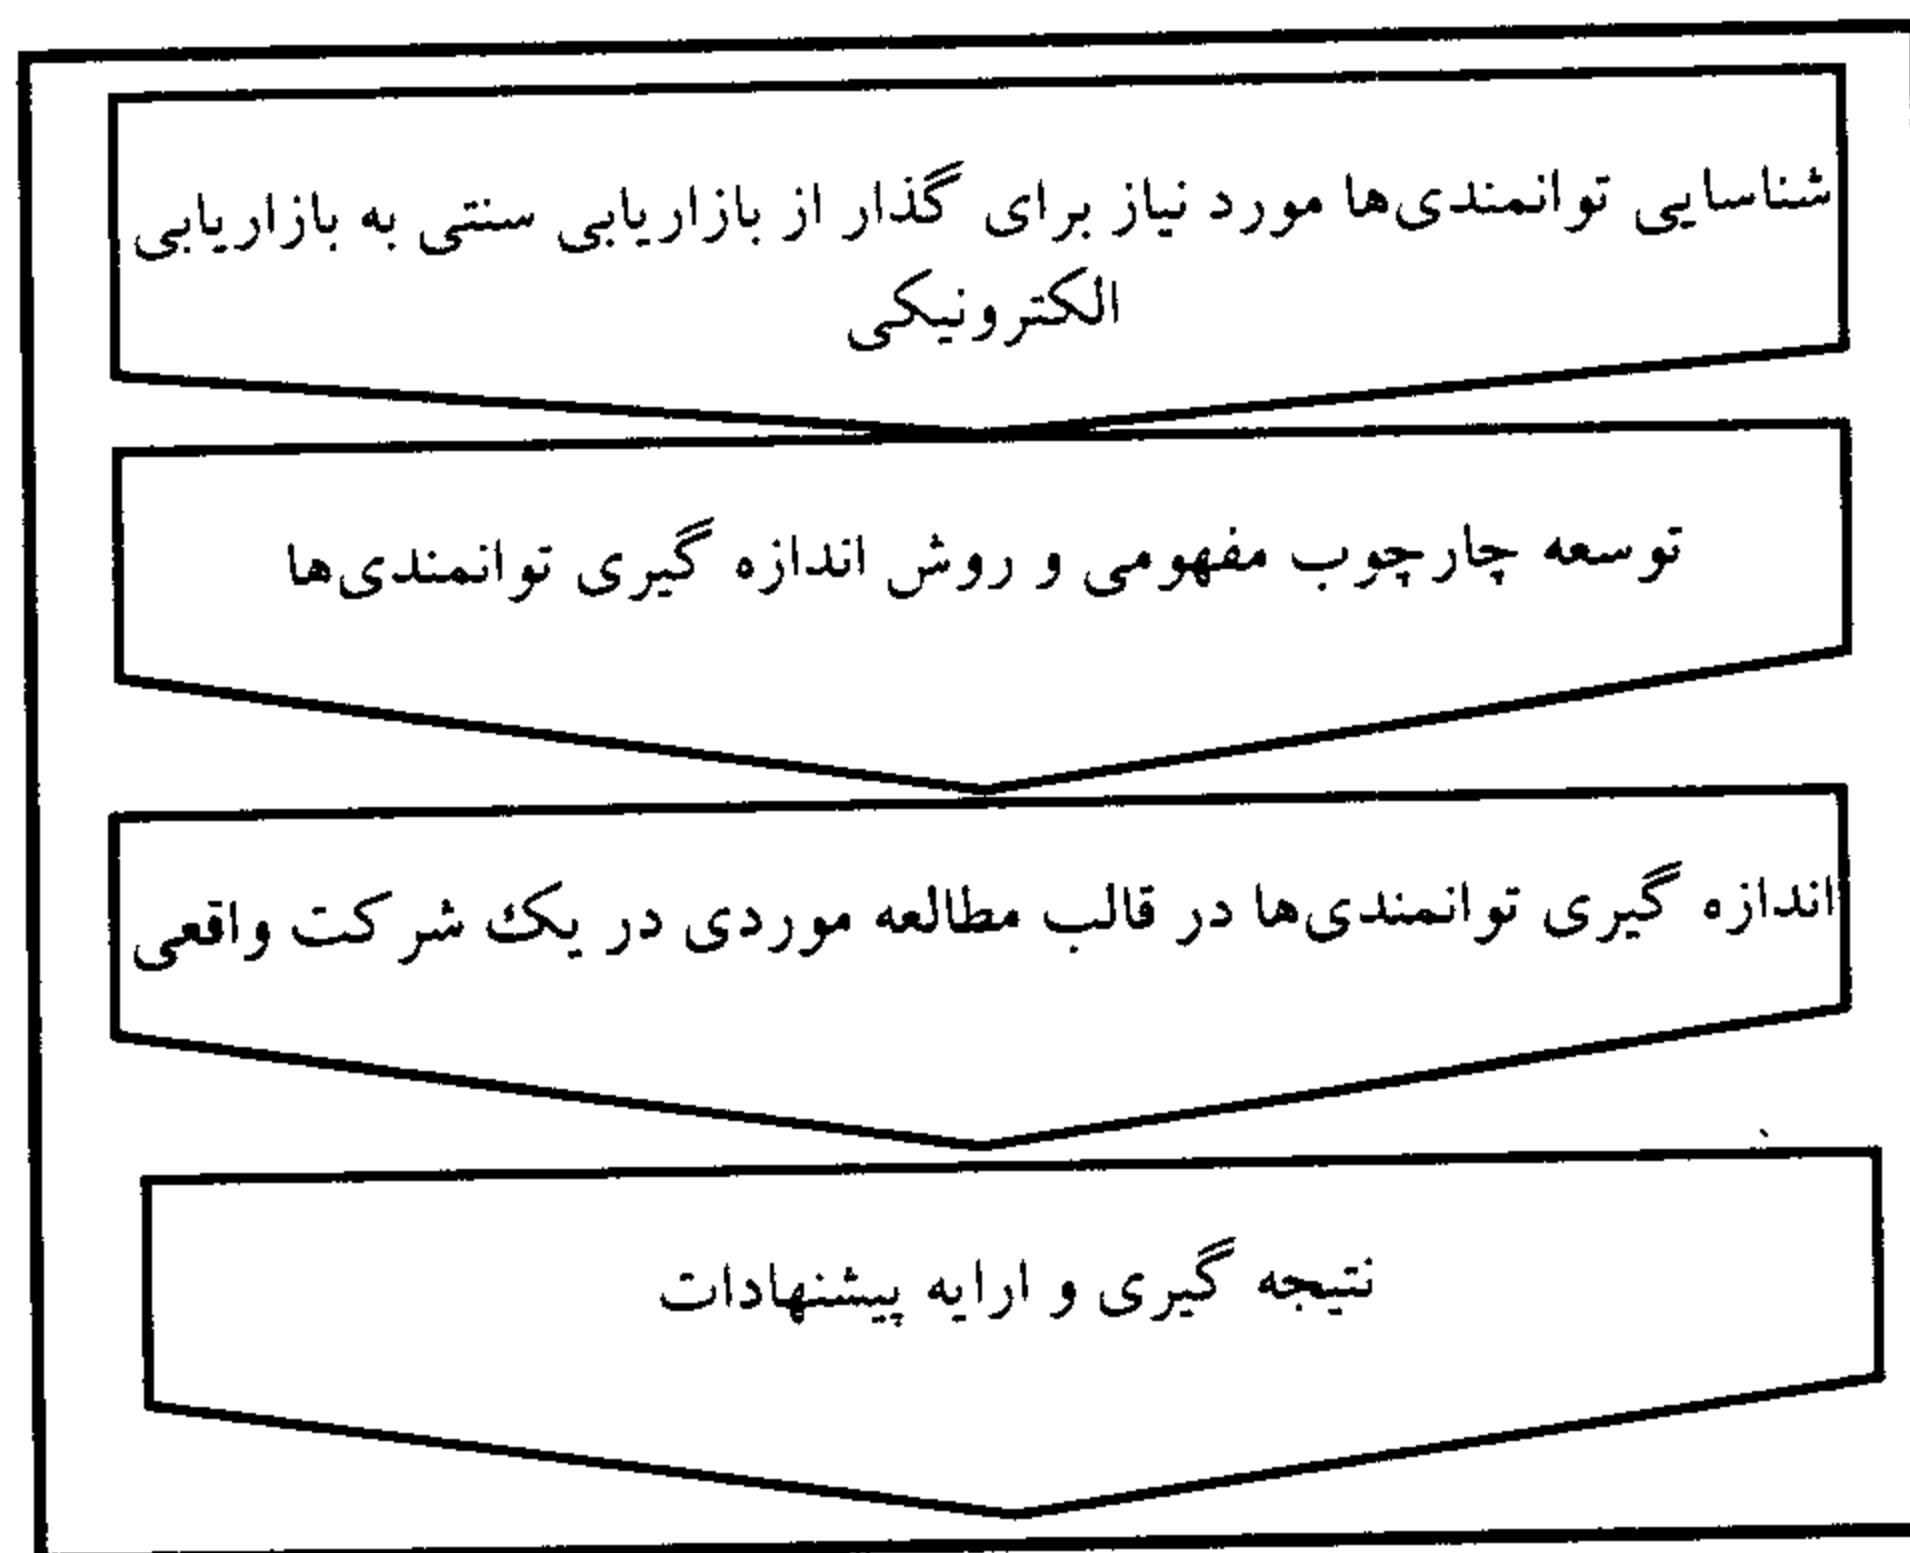 شناسایی توانمندی‌ها مورد نیاز برای گذار از بازاریابی سنتی به بازاریابی
الکترونیکی
توسعه چارچوب مفهومی و روش اندازه گیری توانمندی‌ها
اندازه گیری توانمندی‌ها در قالب مطالعه موردی در یک شرکت واقعی
نتیجه گیری و ارایه پیشنهادات